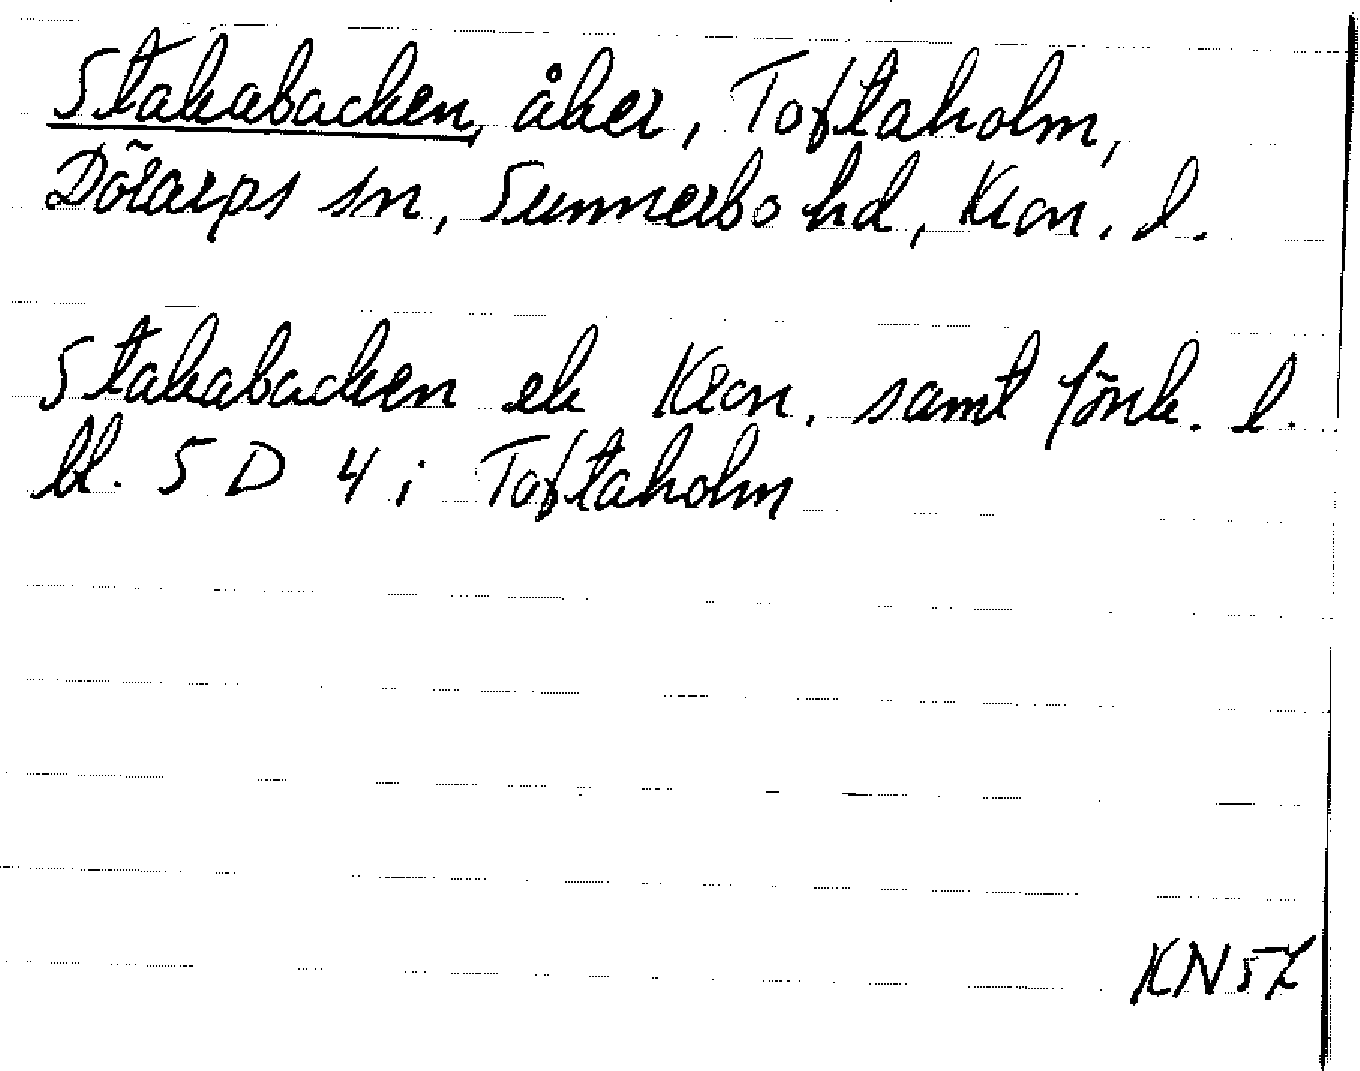 Stakabacken, åker, Toftaholm,
Dörarps sn, Sunnerbo hd, Kron. l.
Stakabacken ek Kron. samt Jönk. l.
bl. 5 D 4 i Toftaholm